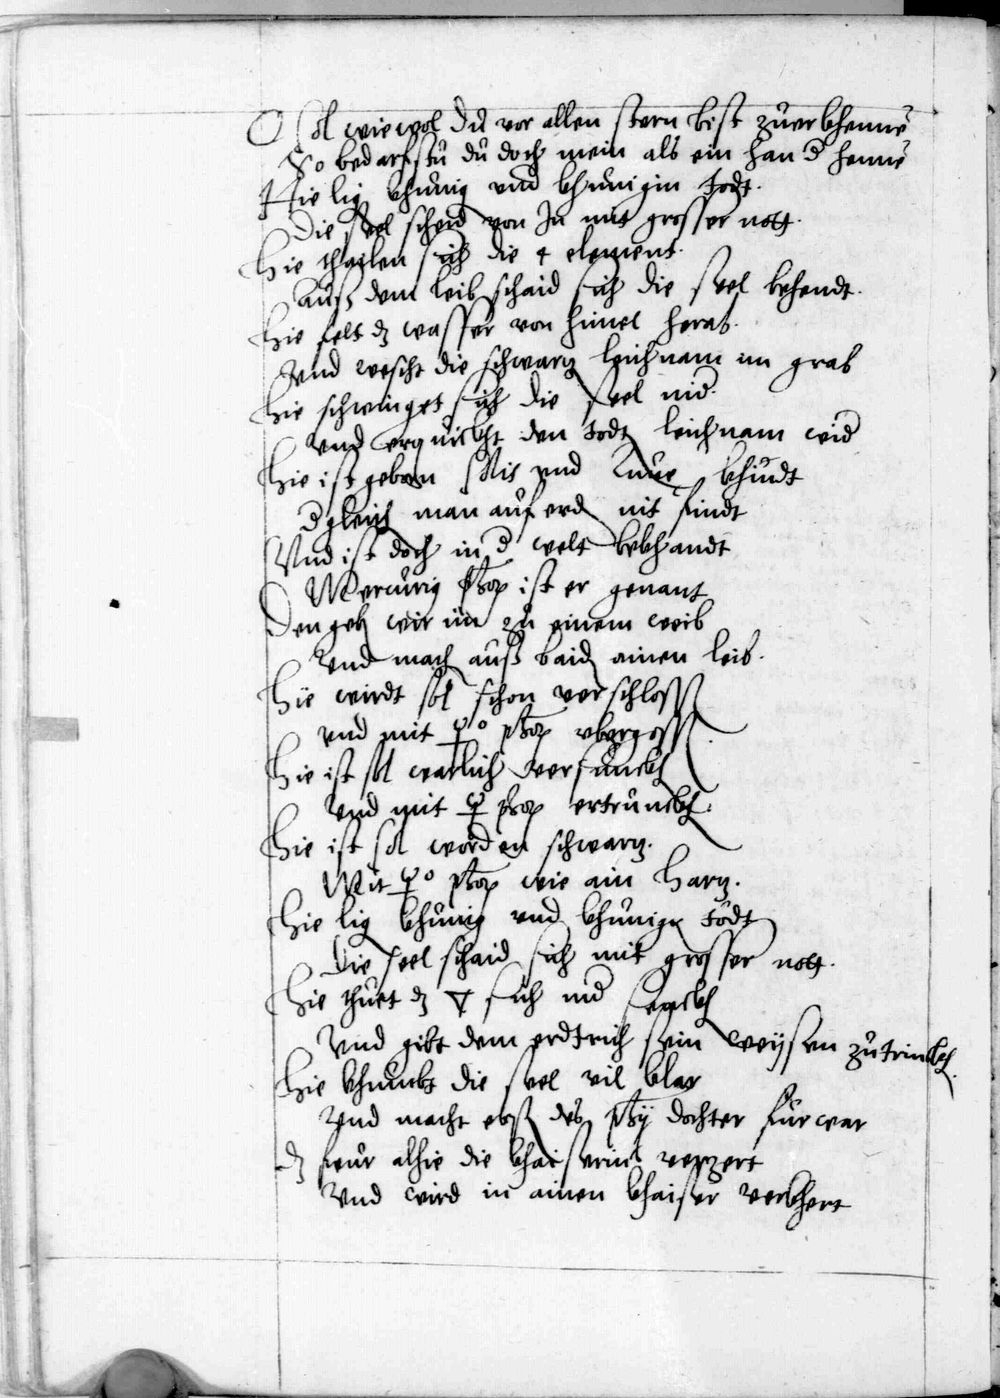 O Sol wiewol du vor allen stern bist zuerkhenne
So bedarfstu du doch mein als ein han d henne
Hie lig khunig und khunigin todt.
Die seel scheid von In mit grosser nott.
Hie thailen sich die 4 element.
Auß dem leib schaid sich die seel behendt.
Hie felt dz wasser von himel herab.
Und wescht die schwarz leichnam im grab
Hie schwinget sich die seel nid.
und erquickht den todt leichnam wid
Hie ist geborn Solis und Lune khindt
d gleich man auf erd nit findt
Und ist doch in d welt bekhandt
Mercurig ist er genant
Den geb wir im zu einem weib
Und mach auß baid ainen leib.
Hie wirdt sol schon verschloss
und mit ☿o ubergoss.
Hie ist sol warlich versunckh
Und mit ☿ ertrunckh.
Hie ist sol worden schwarz.
Mit ☿o wie ain harz.
Hie lig khunig und khunigin todt
Die seel schaid sich mit grosser nott.
Hie thuet dz ∇ sich nid senckh
Und gibt dem erdtrich sein weysen zutrinckh.
Hie khumbt die seel vil klar
Und macht des dochter furwar
dz feur alhie die khaiserin verzert
Und wird in ainen khaiser verkhert